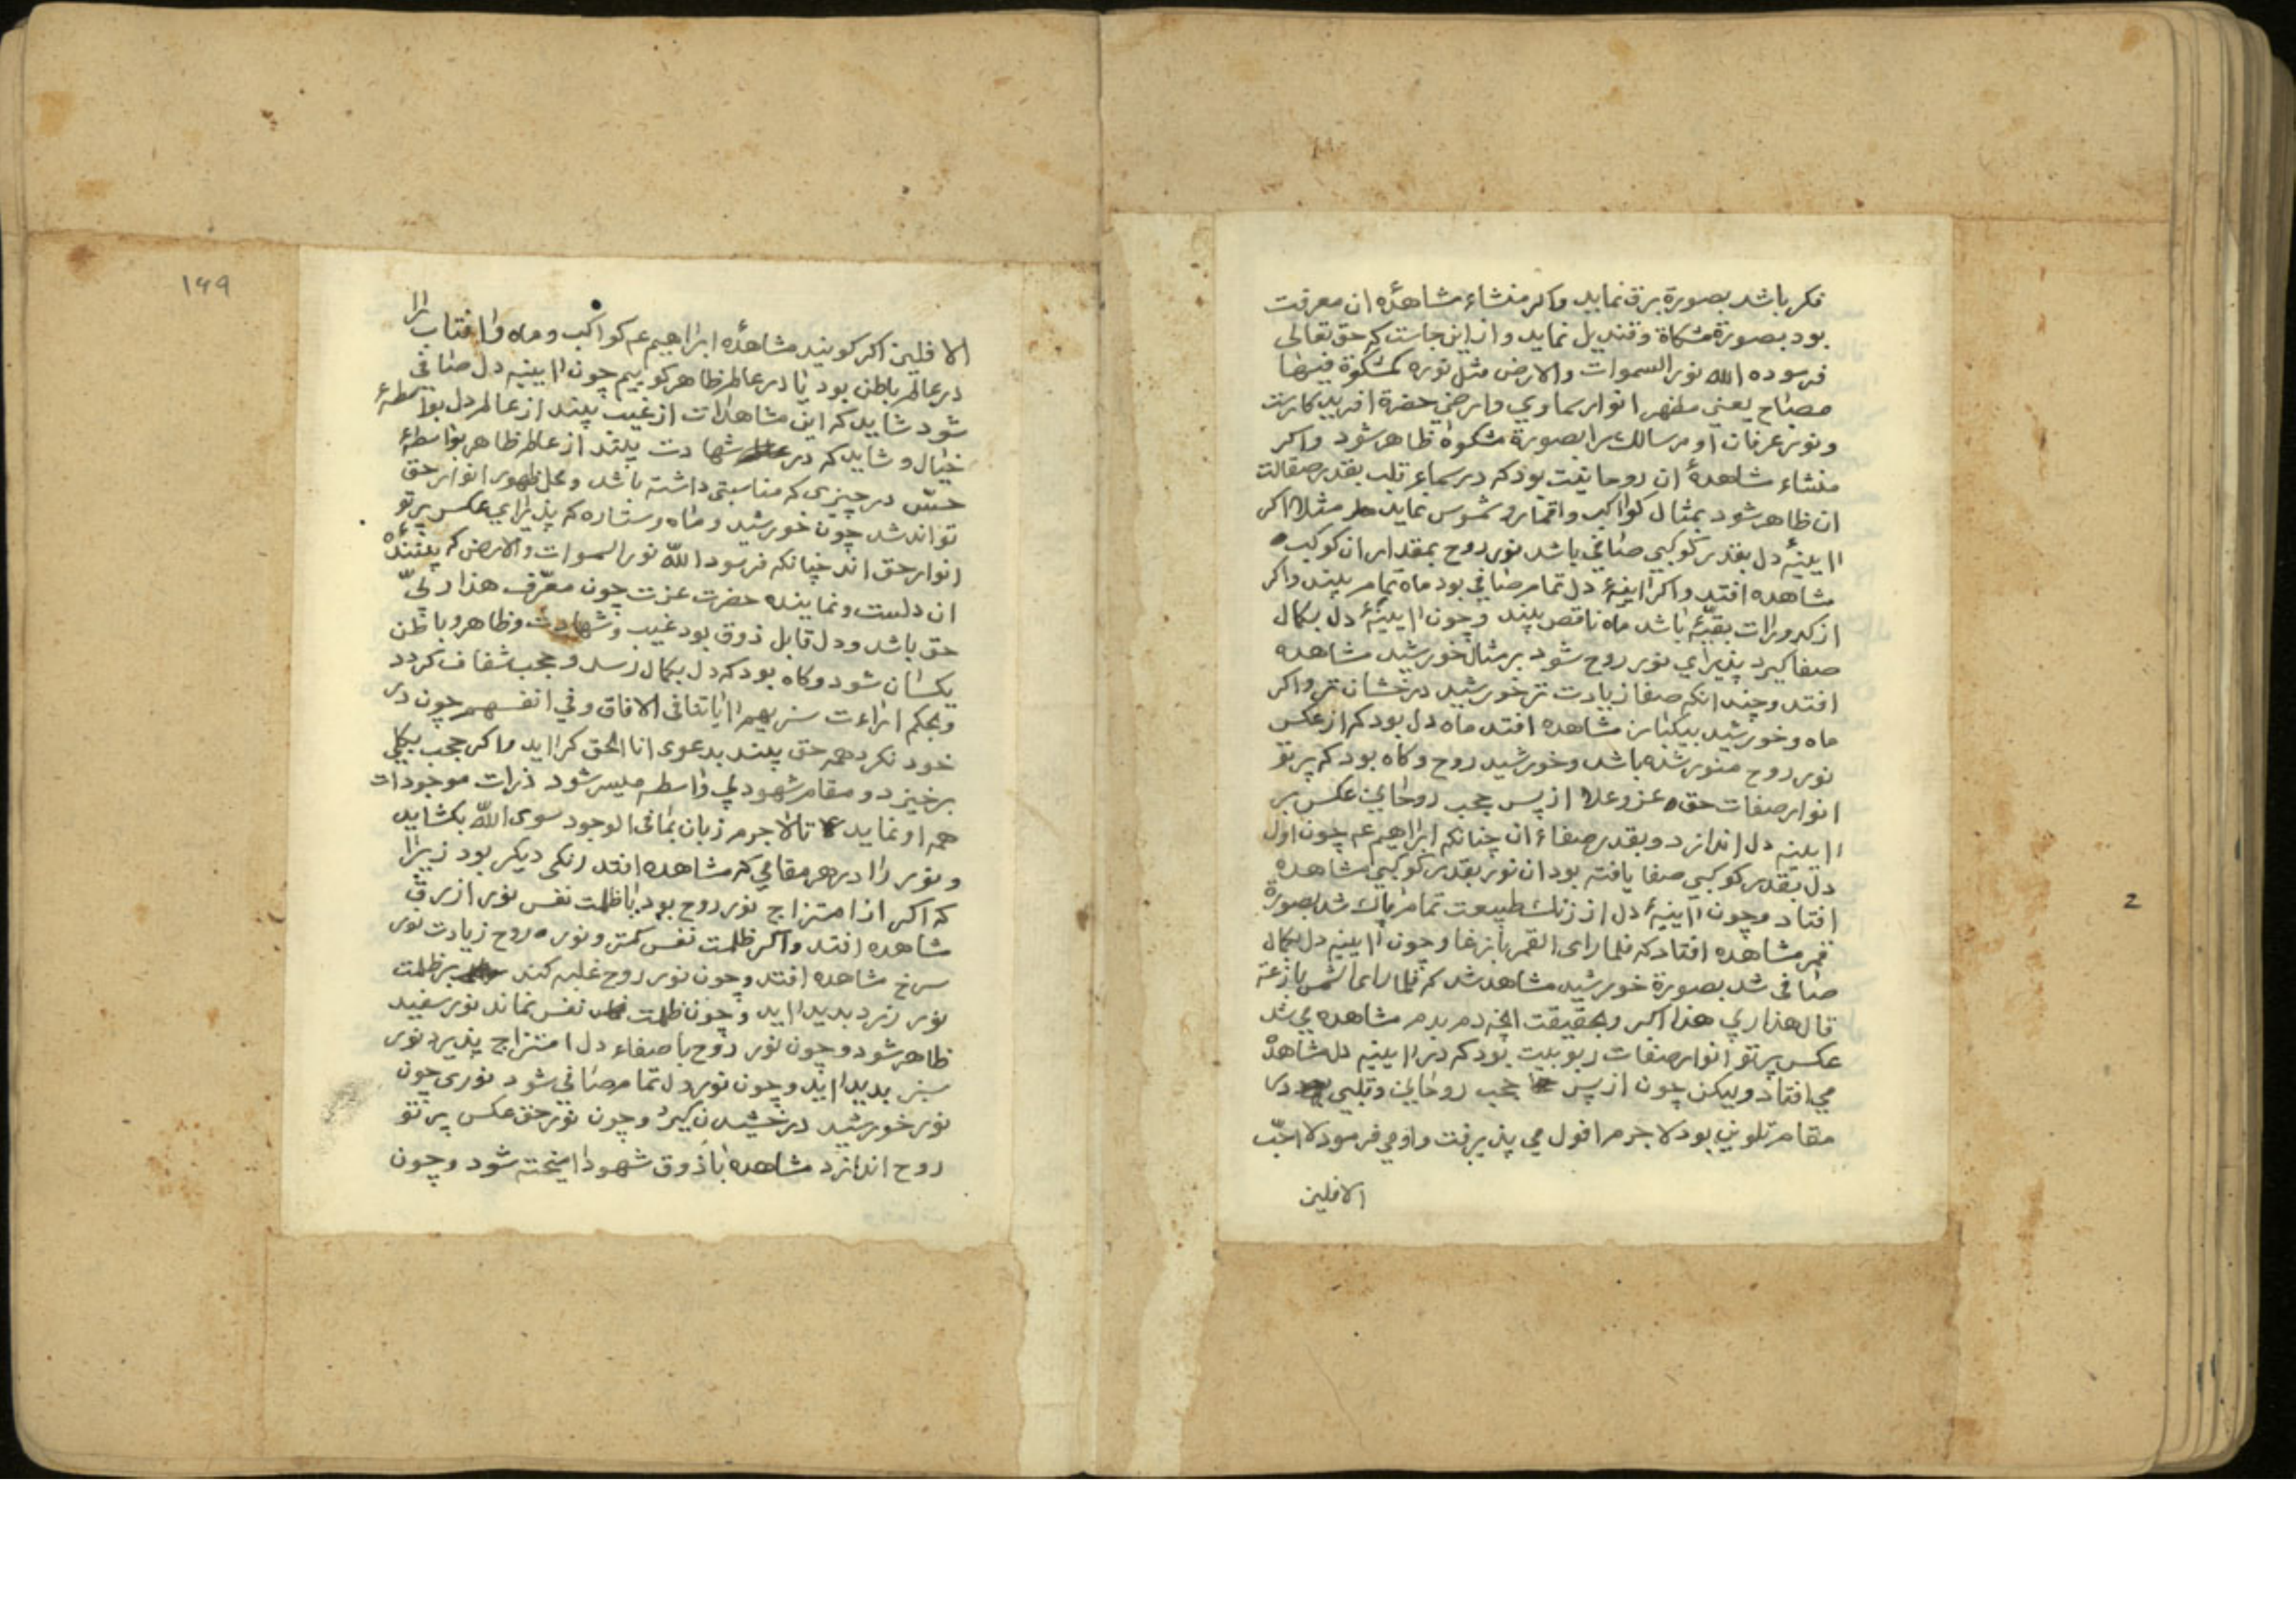 فکر باشد بصورة برق نماید واکر منشاء مشاهدۀ ان معرفت
بود بصورة مشکاة وقندیل نماید واز این جاست که حق تعالی
فرموده الله نور السموات والارض مثل نوره کمشکوة فیها
مصباح یعنی مظهر انوار سماوي وارضي حضرة افریدکارست
ونور عرفان او مر سالک را بصورة مشکوة ظاهر شود واکر
منشاء مشاهدۀ ان روحانیت بود که در سماء قلب بقدر صقالت
ان ظاهر شود بمثال کواکب واقمار وشموس نماید مثلا اکر
اایینۀ دل بقدر کوکبي صافي باشد نور روح بمقدار ان کوکب
مشاهده افتد واکر ایینۀ دل تمام صافي بود ماه تمام بیند واکر
از کدورات بقیّۀ باشد ماه ناقص بیند وچون اایینۀ دل بکمال
صفا کیرد پذیراي نور روح شود بر مثال خورشید مشاهده
افتد وچندانکه صفا زیادت تر خورشید درخشان تر واکر
ماه وخورشید بیکبار مشاهده افتد ماه دل بود که از عکس
نور روح منور شده باشد وخورشید روح وکاه بود که پرتو
انوار صفات حق عز وعلا از پس حجب روحاني عکس بر
اایینه دل اندازد وبقدر صفاء ان چنانکه ابراهیم عم چون اول
دل بقدر کوکبي صفا یافته بود ان نور بقدر کوکبي مشاهده
افتاد وچون اایینۀ دل از زنک طبیعت تمام پاک شد بصورة
قمر مشاهده افتاد که فلما رای القمر بازغا وچون اایینه دل بکمال
صافی شد بصورة خورشید مشاهد شد که فلما رای الشمس بازغة
قال هذا ربي هذا اکبر وبحقیقت انچه دم بدم مشاهده مي شد
عکس پرتو انوار صفات ربوبیت بود که در اایینه دل مشاهده
مي افتاد ولیکن چون از پس حجب روحاني وقلبي در
مقام تلوین بود لا جرم افول مي پذیرفت واو مي فرمود لا احبّ
الافلین
۱۴۹
الافلین اکر کویند مشاهدۀ ابراهیم عم کواکب وماه وافتاب را
در عالم باطن بود یا در عالم ظاهر کوییم چون اایینه دل صافي
شود شاید که این مشاهدات از غیب بیند از عالم دل بواسطۀ
خیال وشاید که در شهادت بیند از عالم ظاهر بواسطۀ
حسّ در چیزی که مناسبتی داشته باشد ومحل ظهور انوار حق
تواند شد چون خورشید وماه وستاره که پذیراي عکس پرتو
انوار حق اند چنانکه فرمود الله نور السموات والارض که بینندۀ
ان دلست ونماینده حضرت عزت چون معرّف هذا ربّي
حق باشد ودل قابل ذوق بود غیب وشهادت وظاهر وباطن
یکسان شود وکاه بود که دل بکمال رسد وحجب شفاف کردد
وبحکم اراءت سنریهم اایاتنا فی الافاق وفي انفسهم چون در
خود نکرد همه حق بیند بدعوی انا الحق کراید واکر حجب بکلي
برخیزد ومقام شهود بي واسطه میسر شود ذرات موجودات
همه او نماید تا لا جرم زبان بما فی الوجود سوی الله بکشاید
ونور را در هر مقامي که مشاهده افتد رنکی دیکر بود زیرا
که اکر از امتزاج نور روح بود با ظلمت نفس نور ازرق
مشاهده افتد واکر ظلمت نفس کمتر ونور روح زیادت نور
سرخ مشاهده افتد وچون نور روح غلبه کند بر ظلمت
نور زرد بدید ااید وچون ظلمت نفس نماند نور سفید
ظاهر شود وچون نور روح با صفاء دل امتزاج پذیرد نور
سبز بدید ااید وچون نور دل تمام صافي شود نوری چون
نور خورشید درخشیدن کیرد وچون نور حق عکس پرتو
روح اندازد مشاهده با ذوق شهود امیخته شود وچون